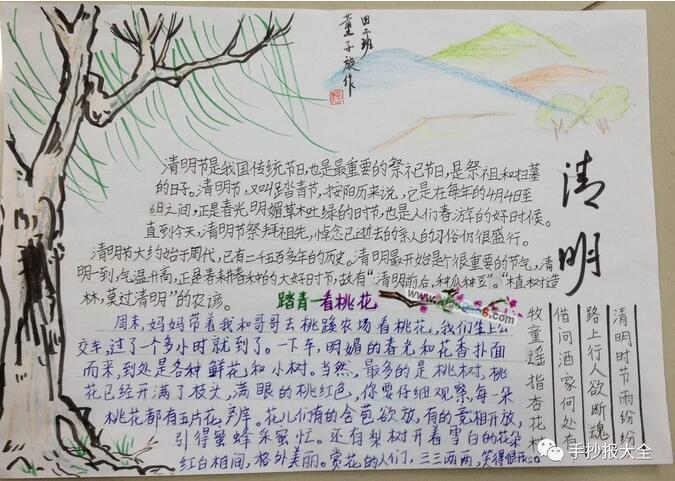 田二班
董子放作
清明节是我国传统节日,也是最重要的祭祀节日,是祭祖和扫墓
的日子。清明节,又叫踏青节,按阳历来说,它是在每年的4月4日至
6日之间,正是春光明媚草木吐绿的日节,也是人们春游年的好时候。
直到今天,清明节祭拜祖先,悼念已逝去的亲人的习俗仍很盛行。
清明节大约始于周代,已有二千五百多年的历史。清明最开始是个很重要的节气,清
明一到,气温升高,正是春耕春种的大好时节,故有“清明前后,种瓜种豆”。“植树造
林,莫过清明”的农谚。
清明
踏青—看桃花
周末,妈妈带着我和哥哥去桃蹊农场看桃花,我们坐上公
交车,过了一个多小时就到了。一下车,明媚的春光和花香扑面
而来,到处是各种鲜花和小树。当然,最多的是桃树,桃
花已经开满了枝头,满眼的桃红色,你要仔细观察,每一朵
桃花都有五片花瓣。花儿们有的含苞欲放,有的竞相开放,
引得蜜蜂采蜜忙。还有梨树开着雪白的花朵
红白相间,格外美丽。赏花的人们,三三两两,笑得很开心。
清明时节雨纷纷
路上行人欲断魂
借问酒家何处有
牧童遥指杏花村
手抄报大全